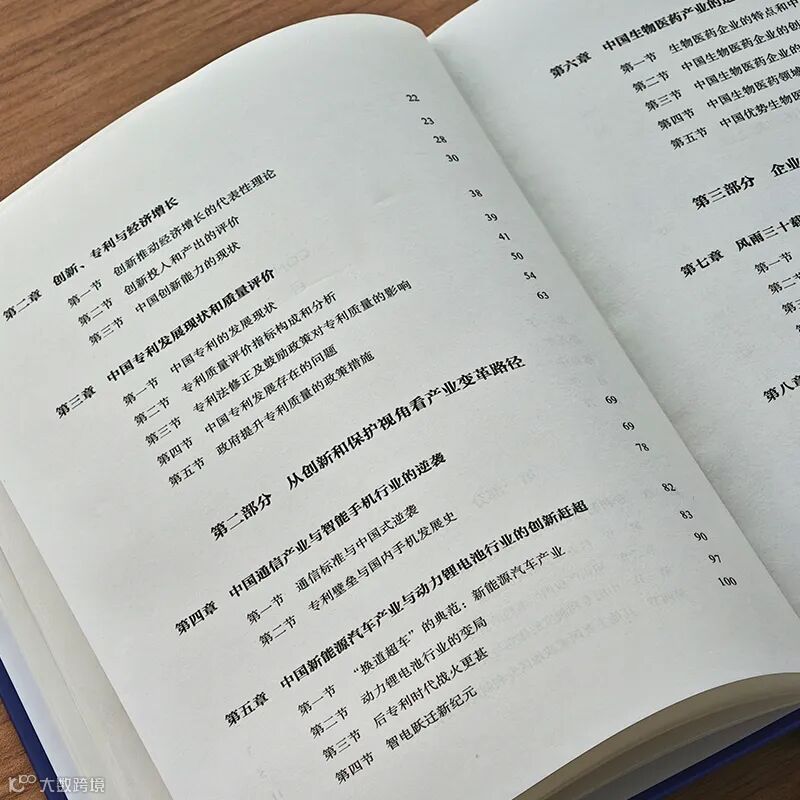 第二章 创新、专利与经济增长 22
第一节 创新推动经济增长的代表性理论 23
第二节 创新投入和产出的评价 28
第三节 中国创新能力的现状 30
第三章 中国专利发展现状和质量评价 38
第一节 中国专利的发展现状 39
第二节 专利质量评价指标构成和分析 41
第三节 专利法修正及鼓励政策对专利质量的影响 50
第四节 中国专利发展存在的问题 54
第五节 政府提升专利质量的政策措施 63
第二部分 从创新和保护视角看产业变革路径
第四章 中国通信产业与智能手机行业的逆袭 69
第一节 通信标准与中国式逆袭 69
第二节 专利壁垒与国内手机发展史 78
第五章 中国新能源汽车产业与动力锂电池行业的创新赶超 82
第一节 “换道超车”的典范：新能源汽车产业 83
第二节 动力锂电池行业的变局 90
第三节 后专利时代战火更甚 97
第四节 智电跃迁新纪元 100
第六章 中国生物医药产业的
第一节 生物医药企业的特点和中
第二节 中国生物医药企业的创
第三节 中国生物医药企业的
第四节 中国生物医药领域
第五节 中国优势生物医
第三部分 企业
第七章 风雨三十载
第一节
第二节
第三节
第四节
第八章
大数跨境